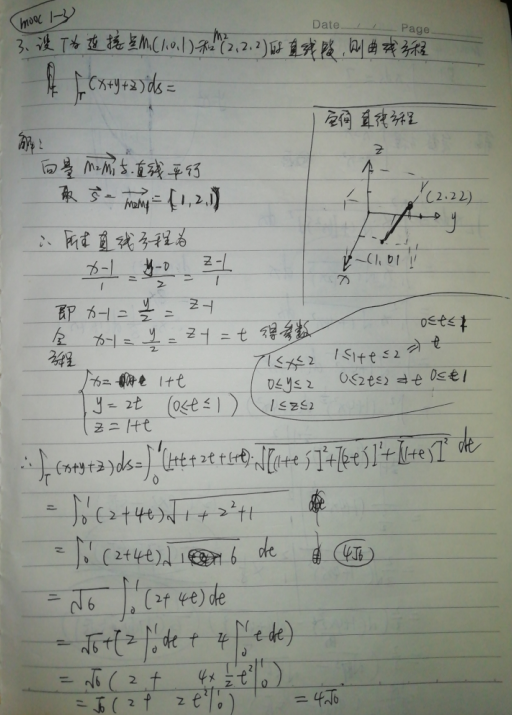 mooc 1-3
Date Page
3. 设 Γ为连接点M₁(1,0,1)和M₂(2,2,2)的直线段,则曲线方程
∫_Γ (x+y+z)ds=
解:
向量 M₂M₁ 与直线平行
取 s = M₂M₁ = {1,2,1}
∴ 所求直线方程为
(x-1)/1 = (y-0)/2 = (z-1)/1
即 x-1 = y/2 = z-1
令 x-1 = y/2 = z-1 = t 得参数
方程
{x= 1+t
y = 2t (0≤t≤1)
z = 1+t
空间直线方程
z
(2,2,2)
y
(1,0,1)
x
0≤t≤1
1≤x≤2 1≤1+t≤2 ⇒ t
0≤y≤2 0≤2t≤2 ⇒ t 0≤t≤1
1≤z≤2
∴ ∫_Γ (x+y+z)ds = ∫₀¹ (1+t+2t+1+t)·√([(1+t)']²+[(2t)']²+[(1+t)']²) dt
= ∫₀¹ (2+4t)√(1+2²+1)
= ∫₀¹ (2+4t)√6 dt 4√6
= √6 ∫₀¹ (2+4t)dt
= √6 + (2∫₀¹ dt + 4∫₀¹ t dt)
= √6 (2 + 4×½t²|₀¹)
= √6 (2 + 2t²|₀¹) = 4√6